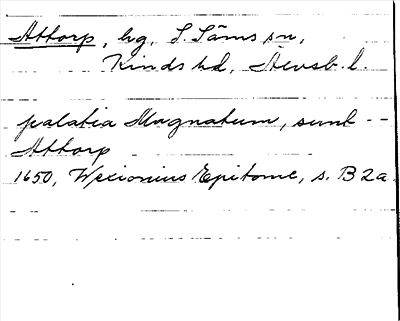 Attorp, hg, S. Säms sn,
Kinds hd, Älvsb. l.
palatia Magnatum, sunt --
Attorp
1650, Wexionius Epitome, s. B2a.